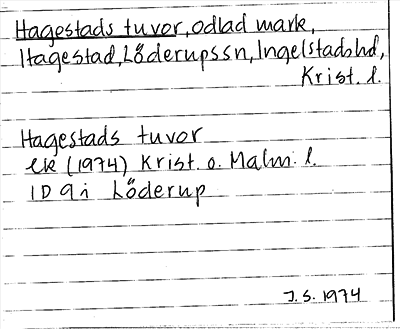 Hagestads tuvor, odlad mark,
Hagestad, Löderupssn, Ingelstadshd,
Krist. l.
Hagestads tuvor
ek (1974) Krist. o. Malm. l.
1D 9i Löderup
J.S. 1974